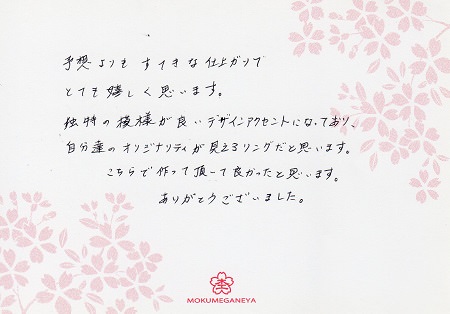 予想よりも すてきな仕上がりで
とても嬉しく思います。
独特の模様が良いデザインアクセントになっており、
自分達のオリジナリティが見えるリングだと思います。
こちらで作って頂いて良かったと思います。
ありがとうございました。
MOKUMEGANEYA